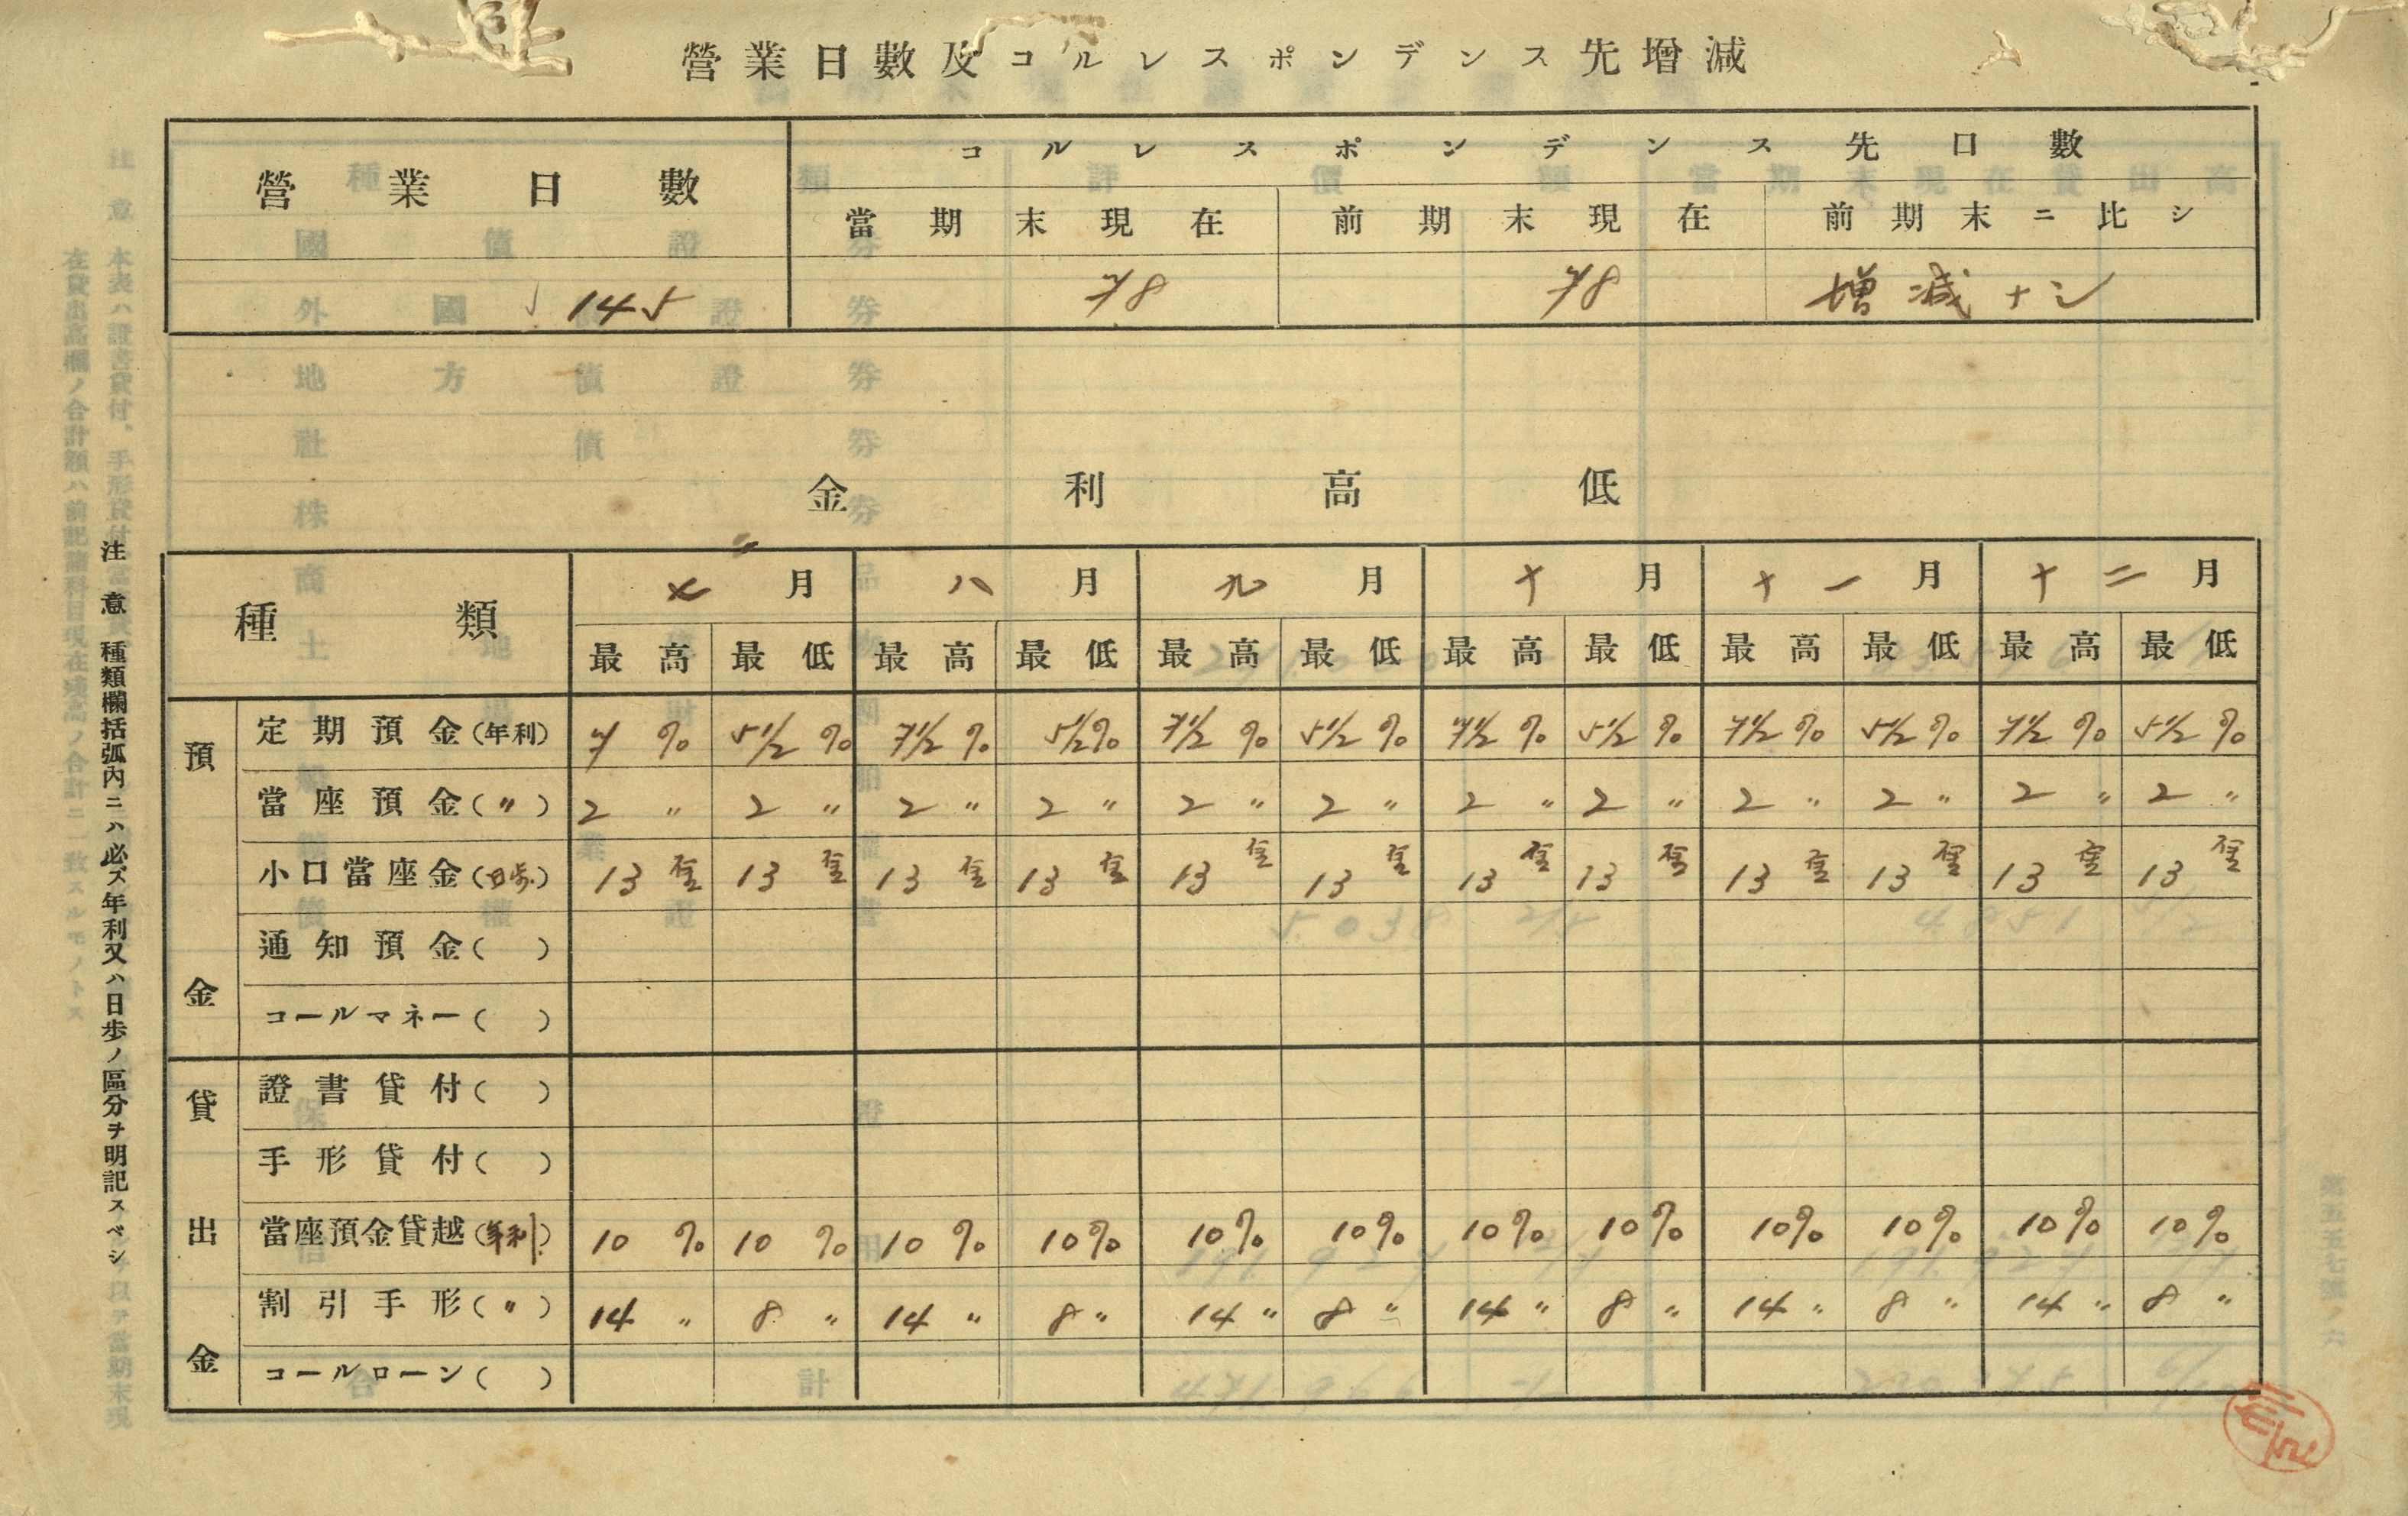 營業日數及コルレスポンデンス先增減
營業日數 コルレスポンデンス先口數
當期末現在 前期末現在 前期末ニ比シ
145 78 78 增減ナシ
金利高低
種類 七月 八月 九月 十月 十一月 十二月
最高 最低 最高 最低 最高 最低 最高 最低 最高 最低 最高 最低
預金
定期預金(年利) 7% 5 1/2% 7 1/2% 5 1/2% 7 1/2% 5 1/2% 7 1/2% 5 1/2% 7 1/2% 5 1/2% 7 1/2% 5 1/2%
當座預金(〃) 2〃 2〃 2〃 2〃 2〃 2〃 2〃 2〃 2〃 2〃 2〃 2〃
小口當座金(日歩) 13厘 13厘 13厘 13厘 13厘 13厘 13厘 13厘 13厘 13厘 13厘 13厘
通知預金( )
コールマネー( )
貸出金
證書貸付( )
手形貸付( )
當座預金貸越(年利) 10% 10% 10% 10% 10% 10% 10% 10% 10% 10% 10% 10%
割引手形(〃) 14〃 8〃 14〃 8〃 14〃 8〃 14〃 8〃 14〃 8〃 14〃 8〃
コールローン( )
注意 種類欄括弧內ニハ必ズ年利又ハ日歩ノ區分ヲ明記スベシ